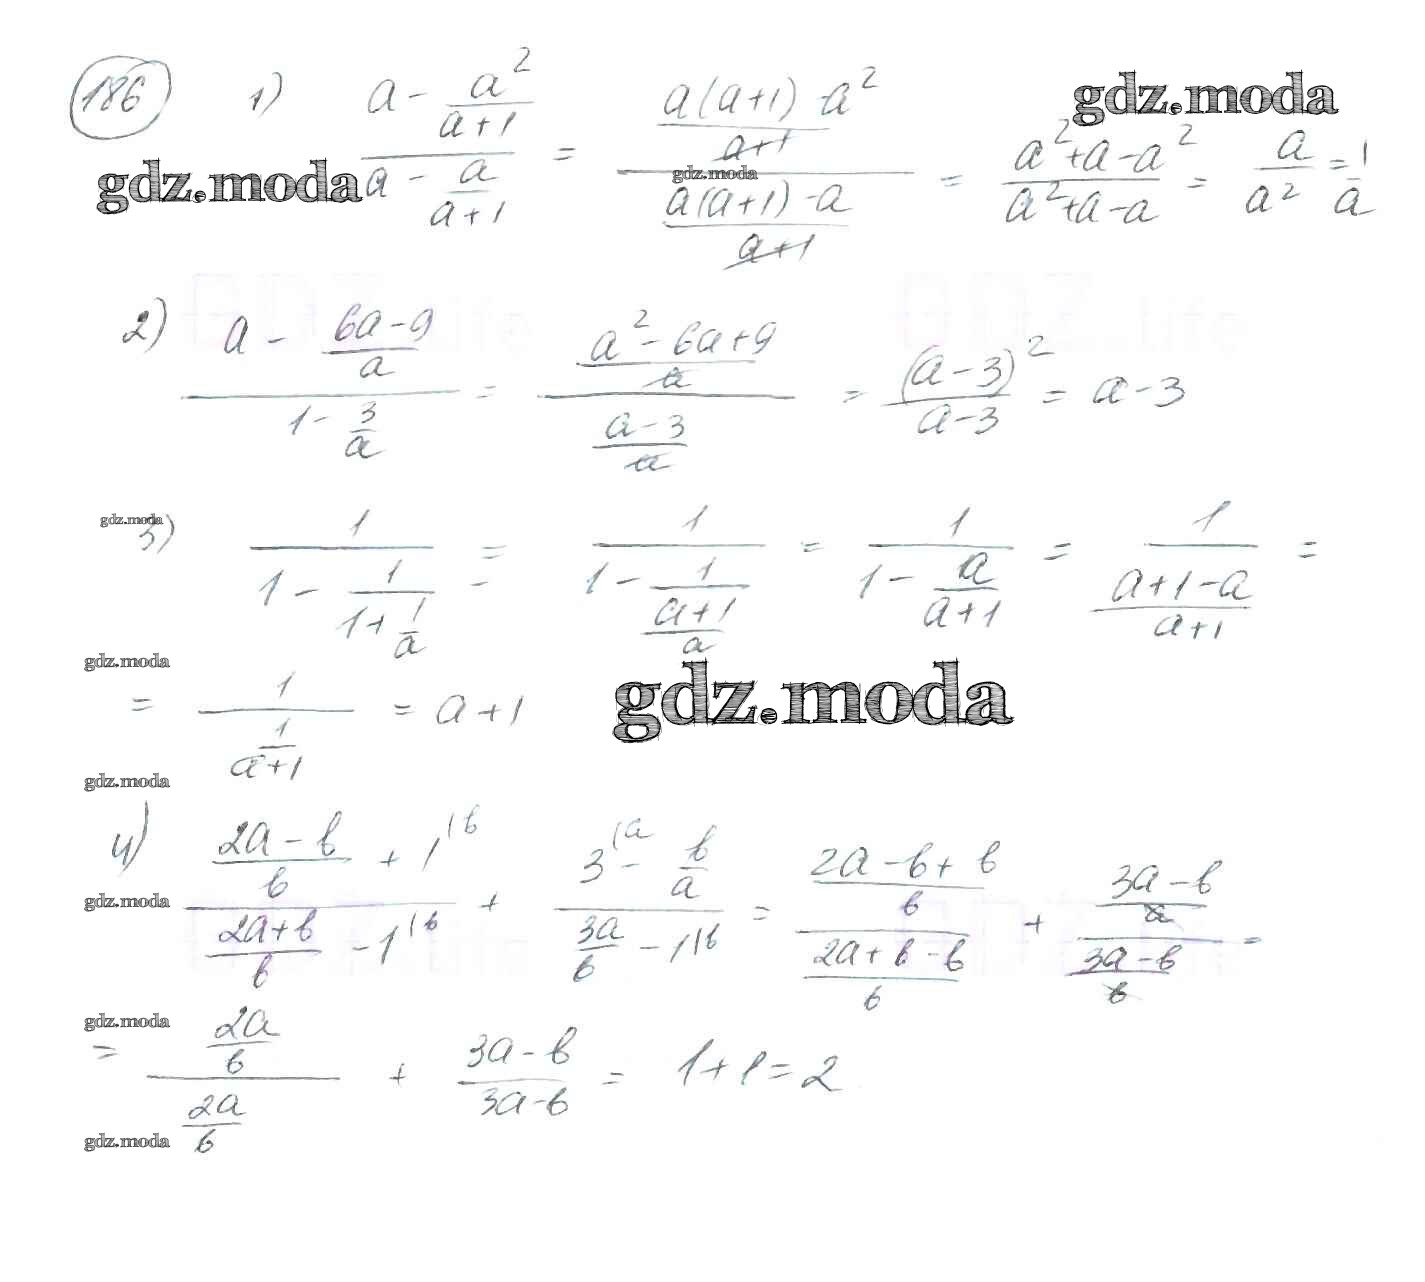 186 1) (a - a²/(a+1)) / (a - a/(a+1)) = ((a(a+1) - a²)/(a+1)) / ((a(a+1) - a)/(a+1)) = (a²+a-a²)/(a²+a-a) = a/a² = 1/a
gdz.moda
gdz.moda
gdz.moda
GDZ.life
GDZ.life
2) (a - (6a-9)/a) / (1 - 3/a) = ((a²-6a+9)/a) / ((a-3)/a) = (a-3)²/(a-3) = a-3
gdz.moda
3) 1/(1 - 1/(1+1/a)) = 1/(1 - 1/((a+1)/a)) = 1/(1 - a/(a+1)) = 1/((a+1-a)/(a+1)) =
gdz.moda
= 1/(1/(a+1)) = a+1
gdz.moda
gdz.moda
4) ((2a-b)/b + 1^(b) / ((2a+b)/b - 1^(b) + (3^(a - b/a) / (3a/b - 1^(b) = ((2a-b+b)/b) / ((2a+b-b)/b) + ((3a-b)/a) / ((3a-b)/b) =
gdz.moda
GDZ.life
GDZ.life
gdz.moda
= (2a/b)/(2a/b) + (3a-b)/(3a-b) = 1+1=2
gdz.moda